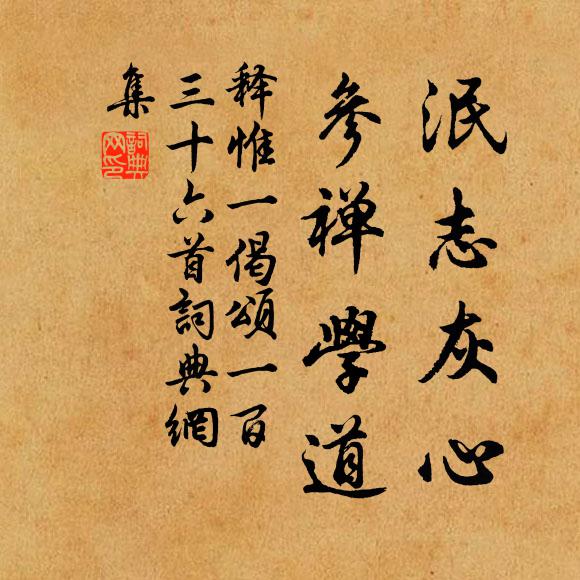 泯志灰心
參禅學道
释惟一偈頌一百
三十六首詞典網
集
詞典網印